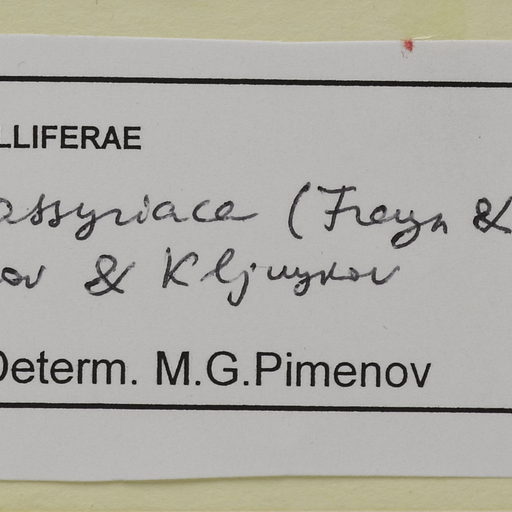 LLIFERAE
assyriaca (Freyn &
ov & Kljuykov
Determ. M.G.Pimenov